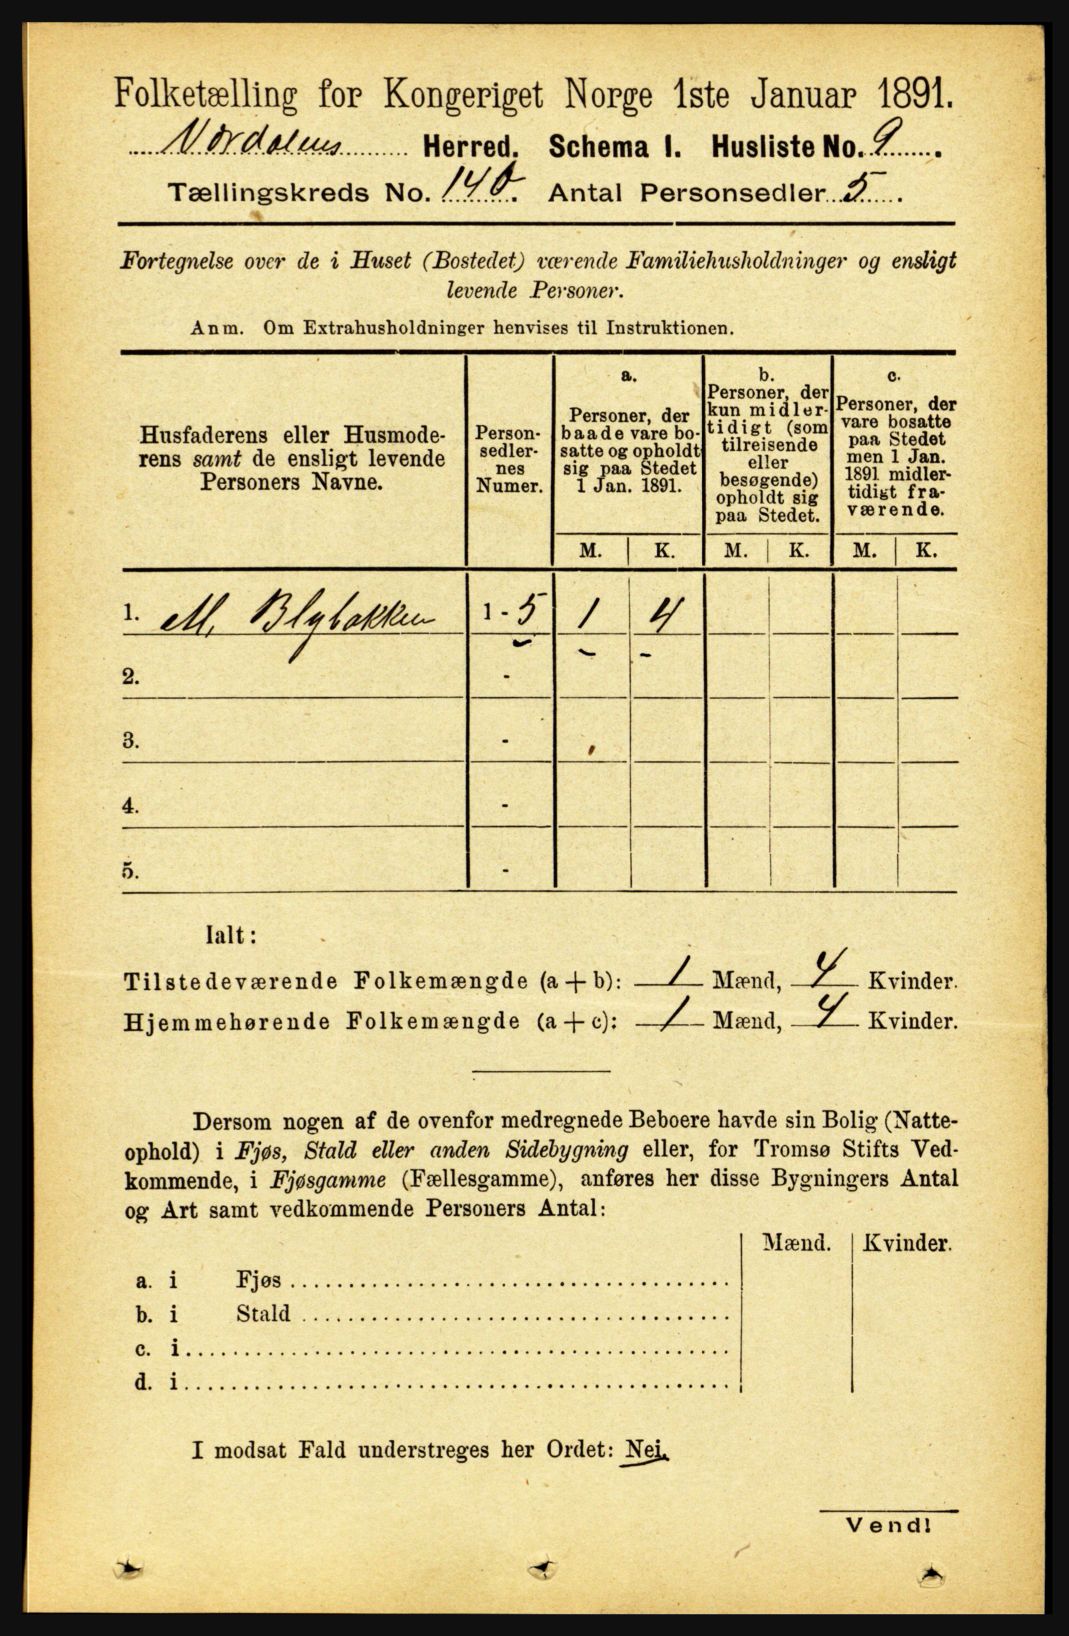 Folketælling for Kongeriget Norge 1ste Januar 1891.
Værdalens Herred. Schema I. Husliste No. 9.
Tællingskreds No. 140. Antal Personsedler 5.
Fortegnelse over de i Huset (Bostedet) værende Familiehusholdninger og ensligt
levende Personer.
Anm. Om Extrahusholdninger henvises til Instruktionen.
Husfaderens eller Husmode-
rens samt de ensligt levende
Personers Navne.
Person-
sedler-
nes
Numer.
a.
Personer, der
baade vare bo-
satte og opholdt
sig paa Stedet
1 Jan. 1891.
b.
Personer, der
kun midler-
tidigt (som
tilreisende
eller
besøgende)
opholdt sig
paa Stedet.
c.
Personer, der
vare bosatte
paa Stedet
men 1 Jan.
1891 midler-
tidigt fra-
værende.
M. K. M. K. M. K.
1. M. Blybakken 1 - 5 1 4
2. -
3. -
4. -
5. -
Ialt:
Tilstedeværende Folkemængde (a + b): 1 Mænd, 4 Kvinder.
Hjemmehørende Folkemængde (a + c): 1 Mænd, 4 Kvinder.
Dersom nogen af de ovenfor medregnede Beboere havde sin Bolig (Natte-
ophold) i Fjøs, Stald eller anden Sidebygning eller, for Tromsø Stifts Ved-
kommende, i Fjøsgamme (Fællesgamme), anføres her disse Bygningers Antal
og Art samt vedkommende Personers Antal:
Mænd. Kvinder.
a. i Fjøs
b. i Stald
c. i
d. i
I modsat Fald understreges her Ordet: Nei.
Vend!